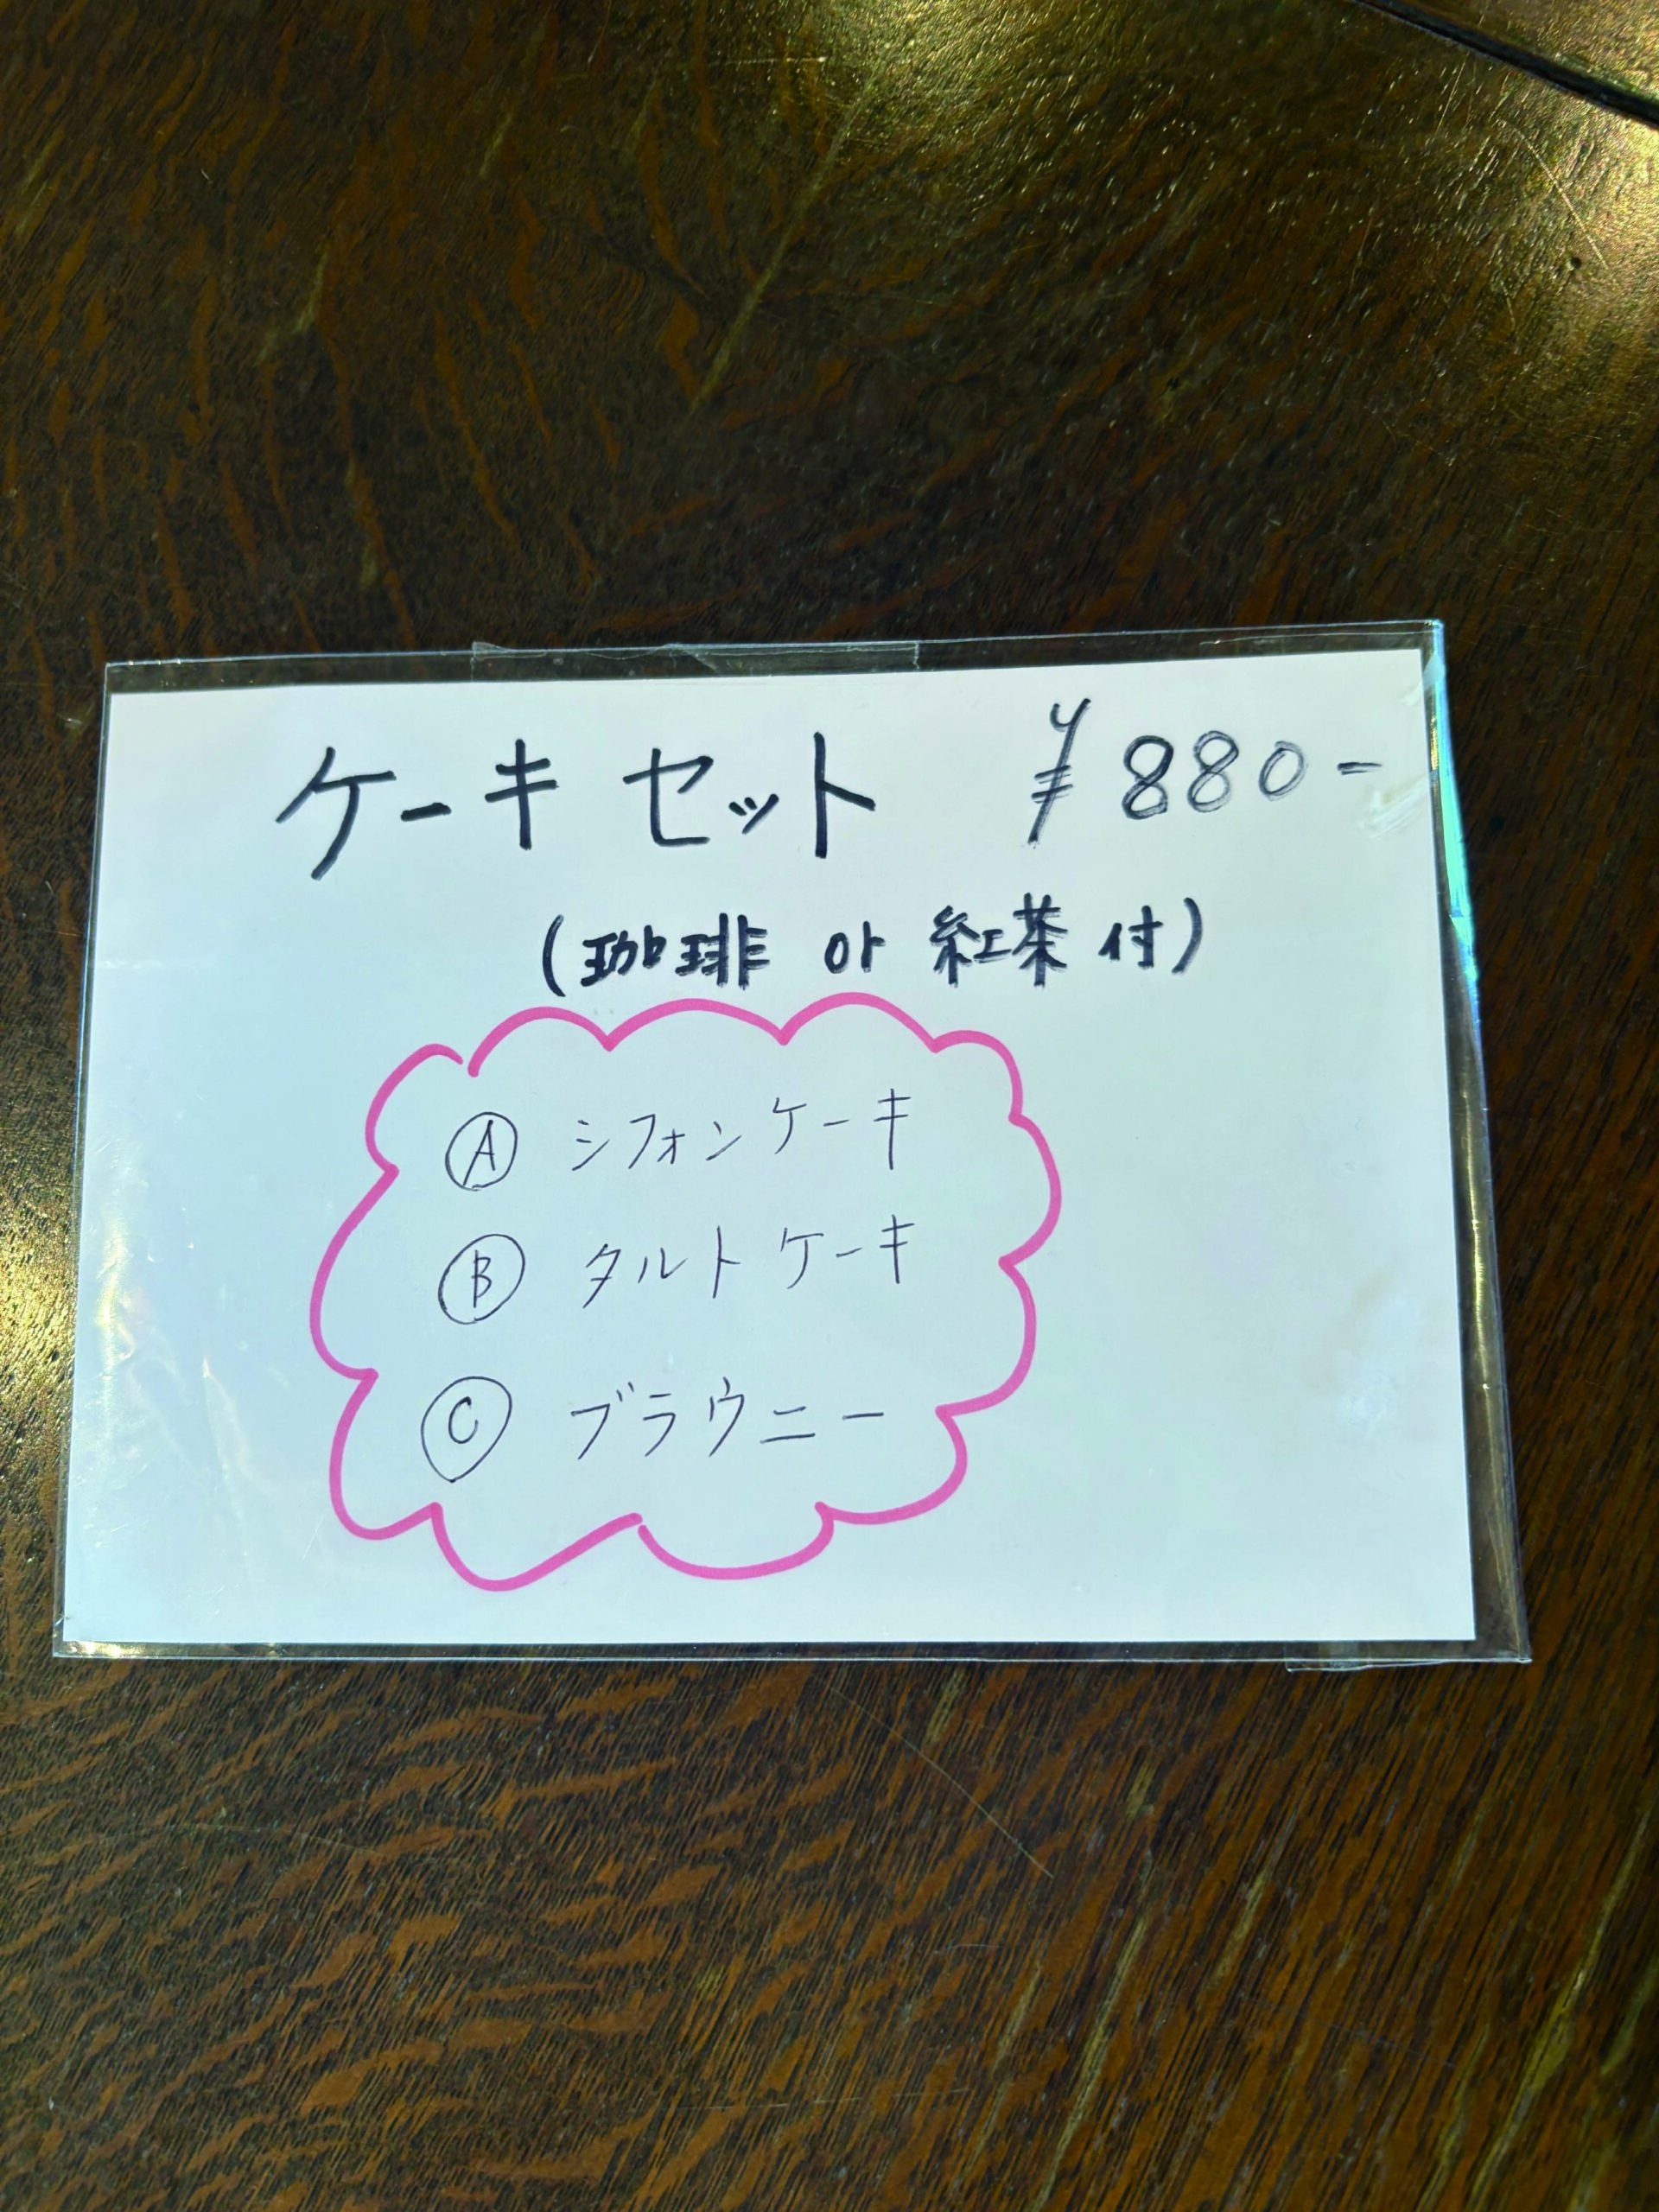 ケーキ セット ¥880-
(珈琲 or 紅茶 付)
Ⓐ シフォンケーキ
Ⓑ タルトケーキ
Ⓒ ブラウニー